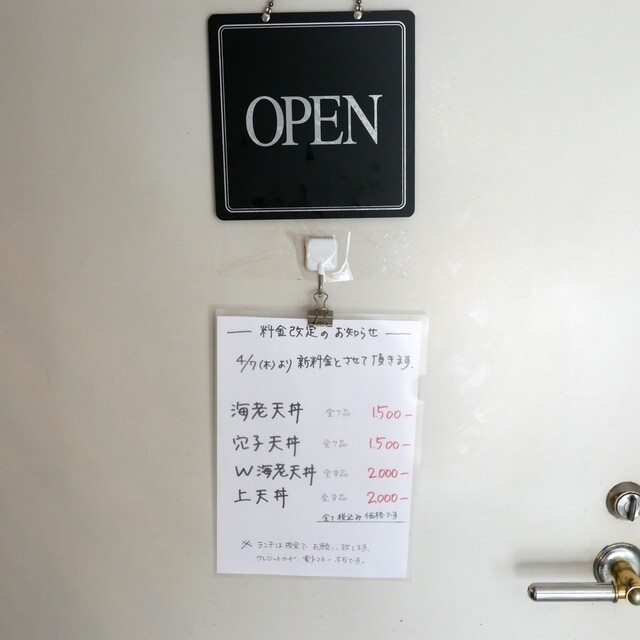 OPEN
料金改定のお知らせ
4/7(木)より 新料金とさせて頂きます。
海老天丼 全7品 1500-
穴子天丼 全7品 1500-
W海老天丼 全8品 2000-
上天丼 全8品 2000-
全て税込み価格です
※ ランチは現金でお願い致します。
クレジットカード、電子マネー不可です。